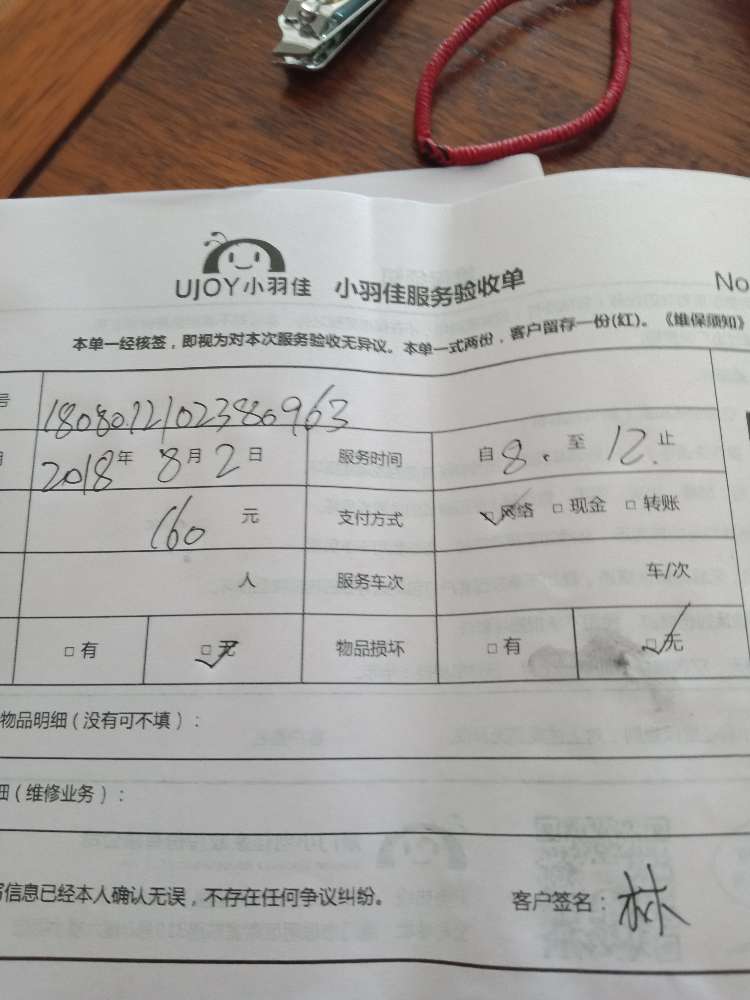 UJOY小羽佳 小羽佳服务验收单 No
本单一经核签，即视为对本次服务验收无异议。本单一式两份，客户留存一份(红)。《维保须知》
号 1808012102380963
2018年 8月 2日 服务时间 自 8. 至 12. 止
160 元 支付方式 □网络 □现金 □转账
人 服务车次 车/次
□有 □无 物品损坏 □有 □无
物品明细（没有可不填）：
细（维修业务）：
写信息已经本人确认无误，不存在任何争议纠纷。 客户签名：林